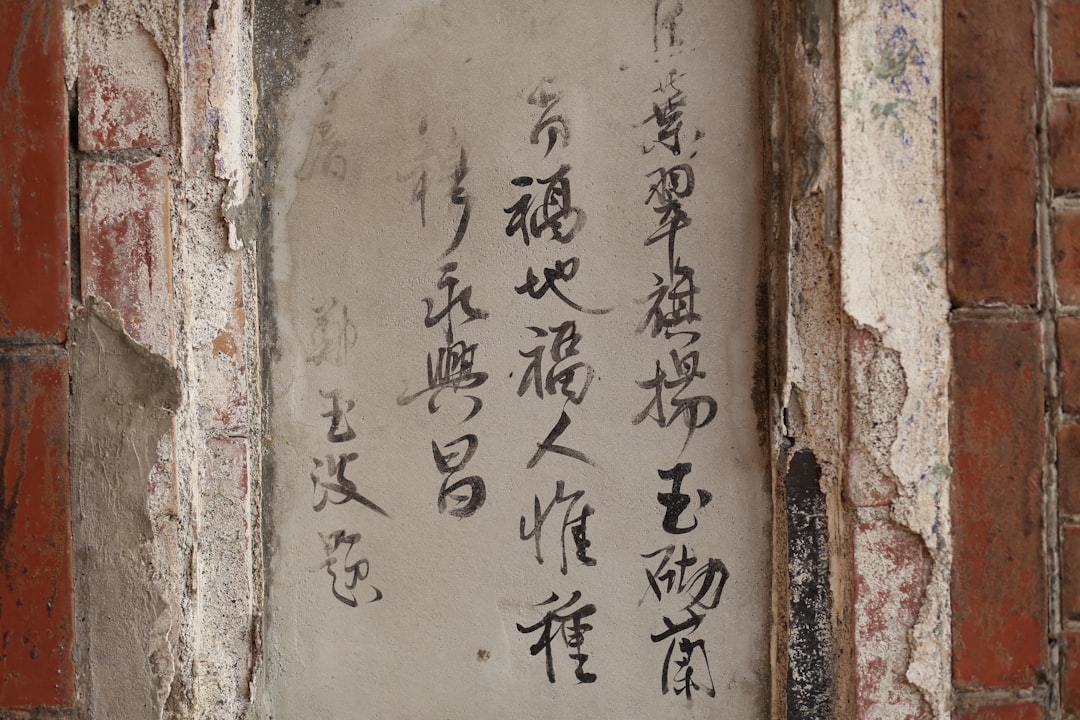 葉翠旗揚玉砌蘭
福地福人惟種
永興昌
鄭玉波題